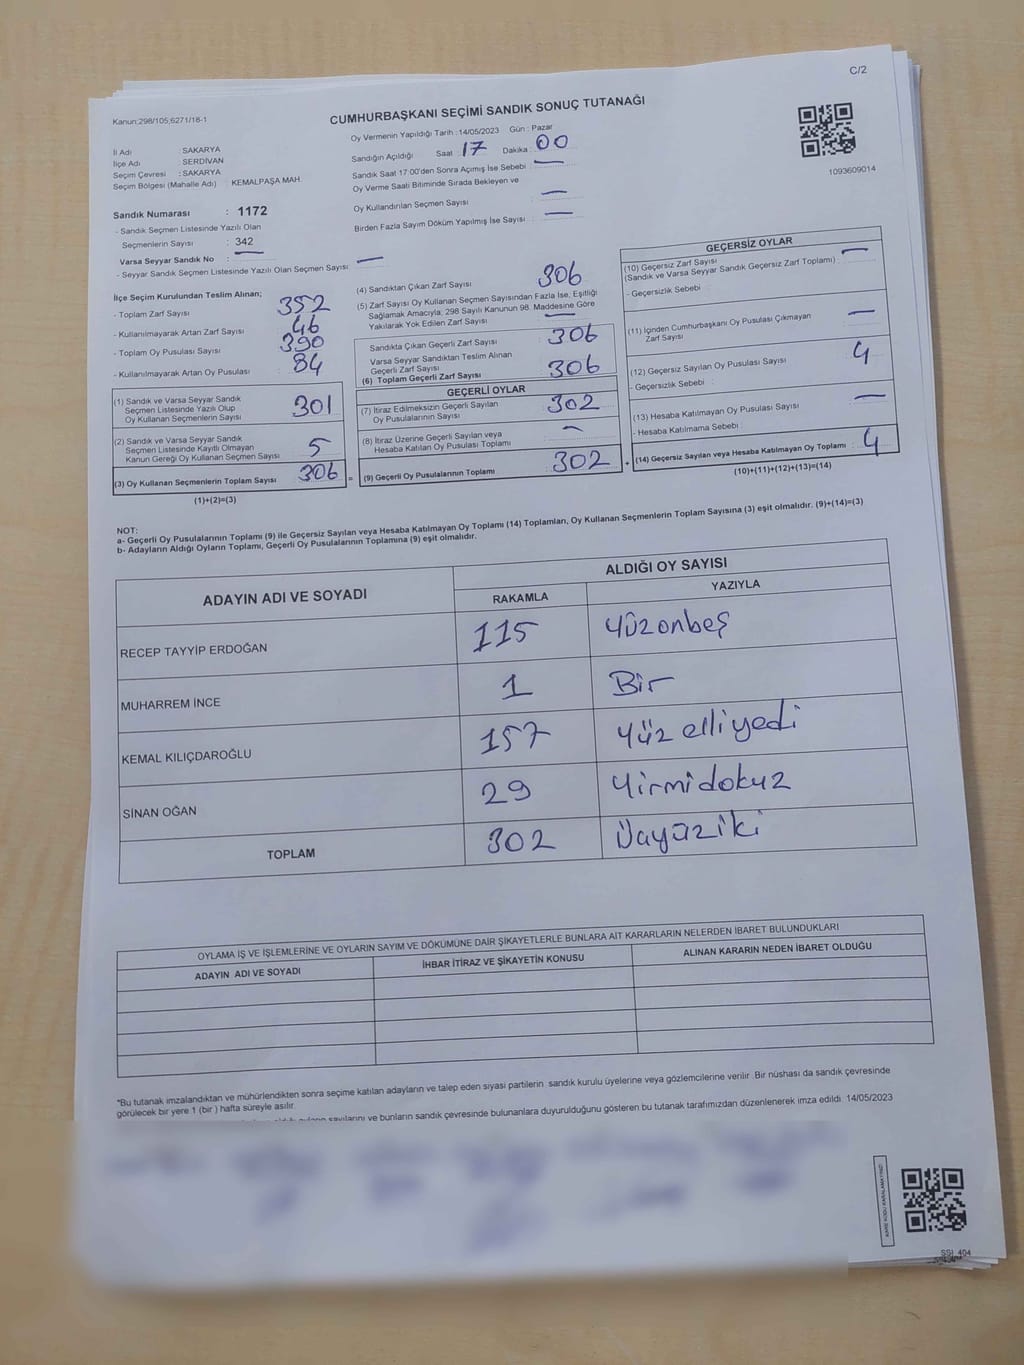 C/2
Kanun:298/105;6271/18-1
CUMHURBAŞKANI SEÇİMİ SANDIK SONUÇ TUTANAĞI
İl Adı : SAKARYA
İlçe Adı : SERDİVAN
Seçim Çevresi : SAKARYA
Seçim Bölgesi (Mahalle Adı) : KEMALPAŞA MAH.
Sandık Numarası : 1172
- Sandık Seçmen Listesinde Yazılı Olan
Seçmenlerin Sayısı : 342
Varsa Seyyar Sandık No : —
- Seyyar Sandık Seçmen Listesinde Yazılı Olan Seçmen Sayısı : —
Oy Vermenin Yapıldığı Tarih : 14/05/2023 Gün : Pazar
Sandığın Açıldığı Saat : 17 Dakika : 00
Sandık Saat 17:00'den Sonra Açımış İse Sebebi : —
Oy Verme Saati Bitiminde Sırada Bekleyen ve
Oy Kullandırılan Seçmen Sayısı : —
Birden Fazla Sayım Döküm Yapılmış İse Sayısı : —
1093609014
İlçe Seçim Kurulundan Teslim Alınan;
- Toplam Zarf Sayısı : 352
- Kullanılmayarak Artan Zarf Sayısı : 46
- Toplam Oy Pusulası Sayısı : 390
- Kullanılmayarak Artan Oy Pusulası : 84
(1) Sandık ve Varsa Seyyar Sandık
Seçmen Listesinde Yazılı Olup
Oy Kullanan Seçmenlerin Sayısı : 301
(2) Sandık ve Varsa Seyyar Sandık
Seçmen Listesinde Kayıtlı Olmayan
Kanun Gereği Oy Kullanan Seçmen Sayısı : 5
(3) Oy Kullanan Seçmenlerin Toplam Sayısı : 306 =
(1)+(2)=(3)
(4) Sandıktan Çıkan Zarf Sayısı : 306
(5) Zarf Sayısı Oy Kullanan Seçmen Sayısından Fazla İse, Eşitliği
Sağlamak Amacıyla; 298 Sayılı Kanunun 98. Maddesine Göre
Yakılarak Yok Edilen Zarf Sayısı : —
Sandıkta Çıkan Geçerli Zarf Sayısı : 306
Varsa Seyyar Sandıktan Teslim Alınan
Geçerli Zarf Sayısı :
(6) Toplam Geçerli Zarf Sayısı : 306
GEÇERLİ OYLAR
(7) İtiraz Edilmeksizin Geçerli Sayılan
Oy Pusulalarının Sayısı : 302
(8) İtiraz Üzerine Geçerli Sayılan veya
Hesaba Katılan Oy Pusulası Toplamı : —
(9) Geçerli Oy Pusulalarının Toplamı : 302 +
GEÇERSİZ OYLAR
(10) Geçersiz Zarf Sayısı : —
(Sandık ve Varsa Seyyar Sandık Geçersiz Zarf Toplamı)
- Geçersizlik Sebebi :
(11) İçinden Cumhurbaşkanı Oy Pusulası Çıkmayan
Zarf Sayısı : —
(12) Geçersiz Sayılan Oy Pusulası Sayısı : 4
- Geçersizlik Sebebi :
(13) Hesaba Katılmayan Oy Pusulası Sayısı : —
- Hesaba Katılmama Sebebi :
(14) Geçersiz Sayılan veya Hesaba Katılmayan Oy Toplamı : 4
(10)+(11)+(12)+(13)=(14)
NOT:
a- Geçerli Oy Pusulalarının Toplamı (9) ile Geçersiz Sayılan veya Hesaba Katılmayan Oy Toplamı (14) Toplamları, Oy Kullanan Seçmenlerin Toplam Sayısına (3) eşit olmalıdır. (9)+(14)=(3)
b- Adayların Aldığı Oyların Toplamı, Geçerli Oy Pusulalarının Toplamına (9) eşit olmalıdır.
ADAYIN ADI VE SOYADI ALDIĞI OY SAYISI
RAKAMLA YAZIYLA
RECEP TAYYİP ERDOĞAN 115 Yüzonbeş
MUHARREM İNCE 1 Bir
KEMAL KILIÇDAROĞLU 157 Yüz elliyedi
SİNAN OĞAN 29 Yirmidokuz
TOPLAM 302 Üçyüziki
OYLAMA İŞ VE İŞLEMLERİNE VE OYLARIN SAYIM VE DÖKÜMÜNE DAİR ŞİKAYETLERLE BUNLARA AİT KARARLARIN NELERDEN İBARET BULUNDUKLARI
ADAYIN ADI VE SOYADI İHBAR İTİRAZ VE ŞİKAYETİN KONUSU ALINAN KARARIN NEDEN İBARET OLDUĞU
*Bu tutanak imzalandıktan ve mühürlendikten sonra seçime katılan adayların ve talep eden siyasi partilerin sandık kurulu üyelerine veya gözlemcilerine verilir. Bir nüshası da sandık çevresinde
görülecek bir yere 1 (bir) hafta süreyle asılır.
oyların sayılarını ve bunların sandık çevresinde bulunanlara duyurulduğunu gösteren bu tutanak tarafımızdan düzenlenerek imza edildi. 14/05/2023
KARE KODU KARALAMAYINIZ!
SSI_404